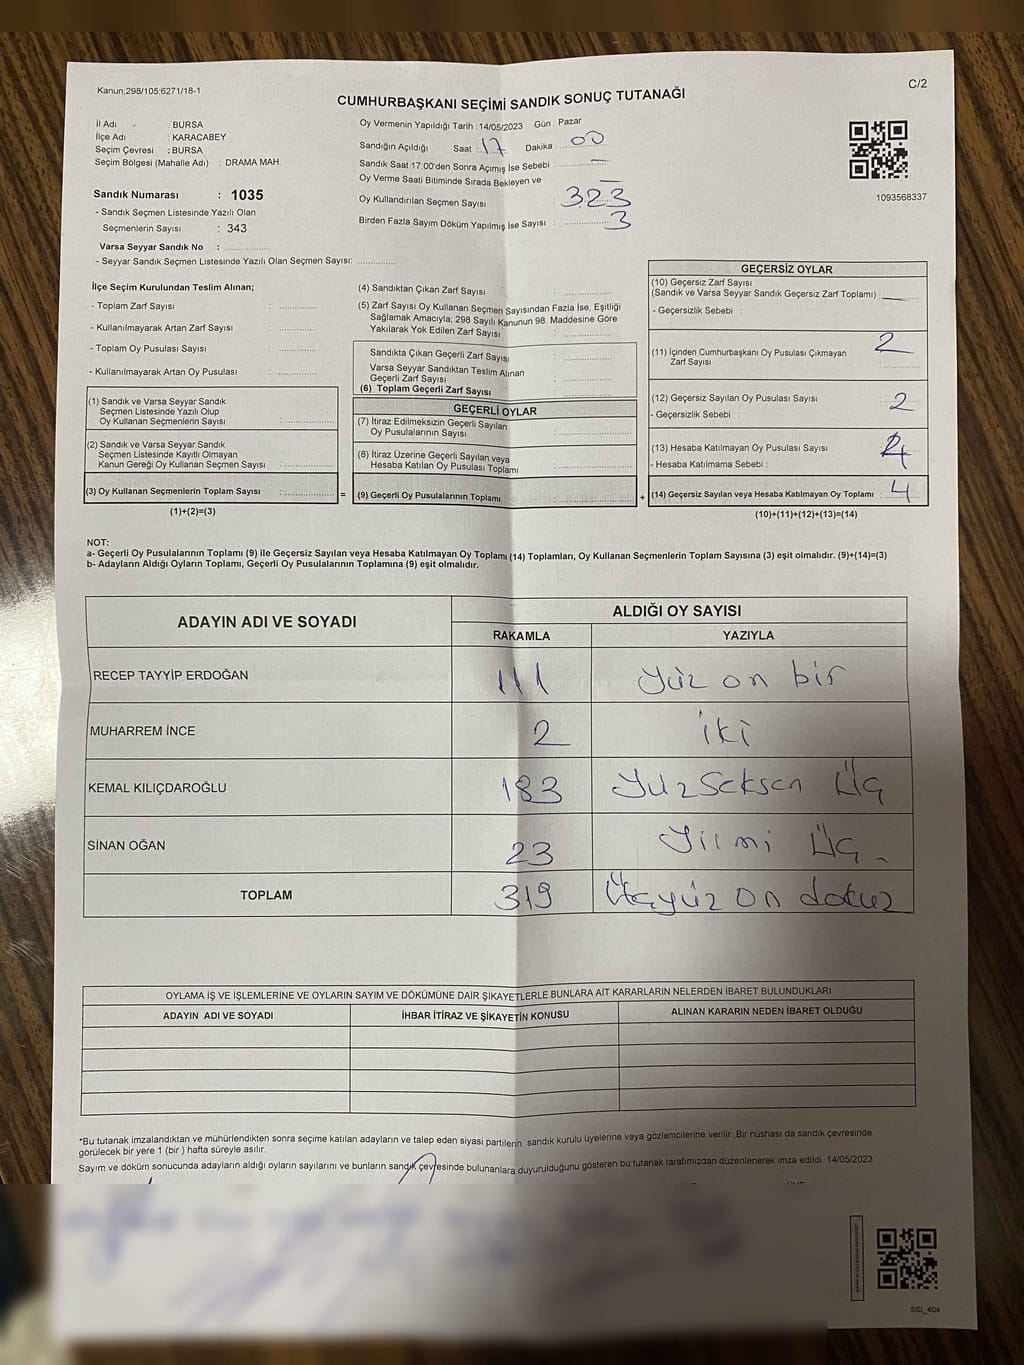 Kanun,298/105;6271/18-1
C/2
CUMHURBAŞKANI SEÇİMİ SANDIK SONUÇ TUTANAĞI
İl Adı : BURSA
İlçe Adı : KARACABEY
Seçim Çevresi : BURSA
Seçim Bölgesi (Mahalle Adı) : DRAMA MAH.
Sandık Numarası : 1035
- Sandık Seçmen Listesinde Yazılı Olan
Seçmenlerin Sayısı : 343
Varsa Seyyar Sandık No :
- Seyyar Sandık Seçmen Listesinde Yazılı Olan Seçmen Sayısı:
Oy Vermenin Yapıldığı Tarih : 14/05/2023 Gün : Pazar
Sandığın Açıldığı Saat : 17 Dakika : 00
Sandık Saat 17:00'den Sonra Açımış İse Sebebi : —
Oy Verme Saati Bitiminde Sırada Bekleyen ve —
Oy Kullandırılan Seçmen Sayısı : 323
Birden Fazla Sayım Döküm Yapılmış İse Sayısı : 3
1093568337
İlçe Seçim Kurulundan Teslim Alınan;
- Toplam Zarf Sayısı :
- Kullanılmayarak Artan Zarf Sayısı :
- Toplam Oy Pusulası Sayısı :
- Kullanılmayarak Artan Oy Pusulası :
(1) Sandık ve Varsa Seyyar Sandık
Seçmen Listesinde Yazılı Olup
Oy Kullanan Seçmenlerin Sayısı :
(2) Sandık ve Varsa Seyyar Sandık
Seçmen Listesinde Kayıtlı Olmayan
Kanun Gereği Oy Kullanan Seçmen Sayısı :
(3) Oy Kullanan Seçmenlerin Toplam Sayısı : =
(1)+(2)=(3)
(4) Sandıktan Çıkan Zarf Sayısı :
(5) Zarf Sayısı Oy Kullanan Seçmen Sayısından Fazla İse, Eşitliği
Sağlamak Amacıyla; 298 Sayılı Kanunun 98. Maddesine Göre
Yakılarak Yok Edilen Zarf Sayısı :
Sandıkta Çıkan Geçerli Zarf Sayısı :
Varsa Seyyar Sandıktan Teslim Alınan
Geçerli Zarf Sayısı :
(6) Toplam Geçerli Zarf Sayısı :
GEÇERLİ OYLAR
(7) İtiraz Edilmeksizin Geçerli Sayılan
Oy Pusulalarının Sayısı :
(8) İtiraz Üzerine Geçerli Sayılan veya
Hesaba Katılan Oy Pusulası Toplamı :
(9) Geçerli Oy Pusulalarının Toplamı : +
GEÇERSİZ OYLAR
(10) Geçersiz Zarf Sayısı
(Sandık ve Varsa Seyyar Sandık Geçersiz Zarf Toplamı) : —
- Geçersizlik Sebebi :
(11) İçinden Cumhurbaşkanı Oy Pusulası Çıkmayan 2
Zarf Sayısı :
(12) Geçersiz Sayılan Oy Pusulası Sayısı : 2
- Geçersizlik Sebebi :
(13) Hesaba Katılmayan Oy Pusulası Sayısı :
- Hesaba Katılmama Sebebi :
(14) Geçersiz Sayılan veya Hesaba Katılmayan Oy Toplamı : 4
(10)+(11)+(12)+(13)=(14)
NOT:
a- Geçerli Oy Pusulalarının Toplamı (9) ile Geçersiz Sayılan veya Hesaba Katılmayan Oy Toplamı (14) Toplamları, Oy Kullanan Seçmenlerin Toplam Sayısına (3) eşit olmalıdır. (9)+(14)=(3)
b- Adayların Aldığı Oyların Toplamı, Geçerli Oy Pusulalarının Toplamına (9) eşit olmalıdır.
ADAYIN ADI VE SOYADI ALDIĞI OY SAYISI
RAKAMLA YAZIYLA
RECEP TAYYİP ERDOĞAN 111 yüz on bir
MUHARREM İNCE 2 iki
KEMAL KILIÇDAROĞLU 183 YuzSeksen Üç
SİNAN OĞAN 23 Yirmi Üç.
TOPLAM 319 Üçyüz on dokuz
OYLAMA İŞ VE İŞLEMLERİNE VE OYLARIN SAYIM VE DÖKÜMÜNE DAİR ŞİKAYETLERLE BUNLARA AİT KARARLARIN NELERDEN İBARET BULUNDUKLARI
ADAYIN ADI VE SOYADI İHBAR İTİRAZ VE ŞİKAYETİN KONUSU ALINAN KARARIN NEDEN İBARET OLDUĞU
*Bu tutanak imzalandıktan ve mühürlendikten sonra seçime katılan adayların ve talep eden siyasi partilerin sandık kurulu üyelerine veya gözlemcilerine verilir. Bir nüshası da sandık çevresinde
görülecek bir yere 1 (bir ) hafta süreyle asılır.
Sayım ve döküm sonucunda adayların aldığı oyların sayılarını ve bunların sandık çevresinde bulunanlara duyurulduğunu gösteren bu tutanak tarafımızdan düzenlenerek imza edildi. 14/05/2023
SSİ_404